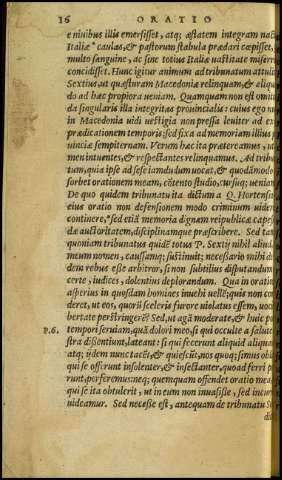 16 ORATIO
e niuibus illis emersisset, atq; æstatem integram nact
Italiæ* caulas, & pastorum stabula prædari cœpisset,
multo sanguine, ac sine totius Italiæ uastitate miserri
concidisset. Hunc igitur animum ad tribunatum attulit
Sextius, ut quæsturam Macedoniæ relinquam, & aliqua
do ad hæc propiora ueniam. Quamquam non est omitten
da singularis illa integritas prouincialis: cuius ego nu
in Macedonia uidi uestigia non pressa leuiter ad ex
prædicationem temporis: sed fixa ad memoriam illius p
uinciæ sempiternam. Verum hæc ita prætereamus, ut
men intuentes, & respectantes relinquamus. Ad tribu
tum, quia ipse ad sese iamdudum uocat, & quodãmodo
sorbet orationem meam, cõtento studio, cursuq; ueniam
De quo quidem tribunatu ita dictum a Q. Hortensio
eius oratio non defensionem modo criminum uide
continere, * sed etiã memoria dignam reipublicæ capes
dæ auctoritatem, disciplinamque præscribere. Sed tam
quoniam tribunatus quidẽ totus P. Sextij nihil aliud
meum nomen, caussamq; sustinuit; necessario mihi d
dem rebus esse arbitror, si non subtilius disputandum
certe, iudices, dolentius deplorandum. Qua in oratio
asperius in quosdam homines inuehi uellẽ; quis non con
deret, ut eos, quorũ sceleris furore uiolatus essem, uoc
bertate perstringerẽ? Sed, ut agã moderate, & huic p
P.6. tempori seruiam, quã dolori meo, si qui occulte a salute
stra dissentiunt, lateant: si qui fecerunt aliquid aliqua
atq; ijdem nunc tacẽt, & quiescũt, nos quoq; simus obli
qui se offerunt insolenter, & insectantur, quoad ferri p
runt, perferemus: neq; quemquam offendet oratio mea
qui se ita obtulerit, ut in eum non inuasisse, sed incur
uideamur. Sed necesse est, antequam de tribunatu S
di